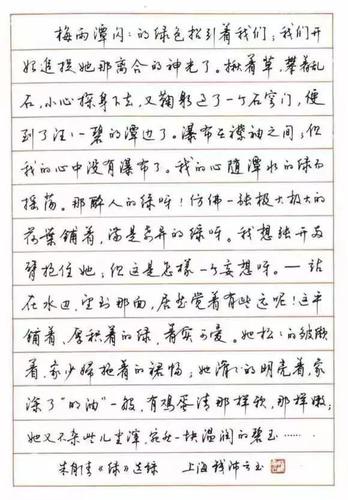 梅雨潭闪〻的绿色招引着我们；我们开
始追捉她那离合的神光了。揪着草，攀着乱
石，小心探身下去，又鞠躬过了一个石穹门，便
到了汪〻一碧的潭边了。瀑布在襟袖之间；但
我的心中没有瀑布了。我的心随潭水的绿而
摇荡。那醉人的绿呀！仿佛一张极大极大的
荷叶铺着，满是奇异的绿呀。我想张开两
臂抱住她；但这是怎样一个妄想呀。——站
在水边，望到那面，居然觉着有些远呢！这平
铺着，厚积着的绿，着实可爱。她松〻的皱缬
着，象少妇拖着的裙幅；她滑〻的明亮着，象
涂了"明油"一般，有鸡蛋清那样软，那样嫩；
她又不杂些儿尘滓，宛然一块温润的碧玉……
朱自清《绿》选録 上海钱沛云书